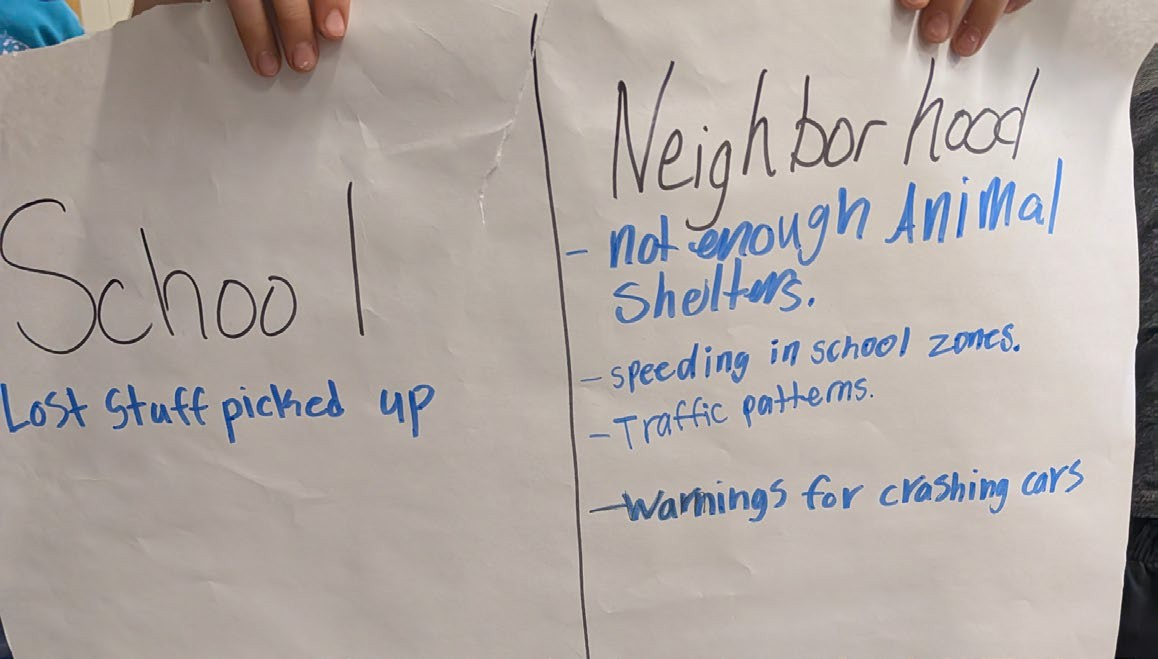 School
Lost Stuff picked up
Neighborhood
- not enough Animal
Shelters.
- speeding in school zones.
- Traffic patterns.
- Warnings for crashing cars